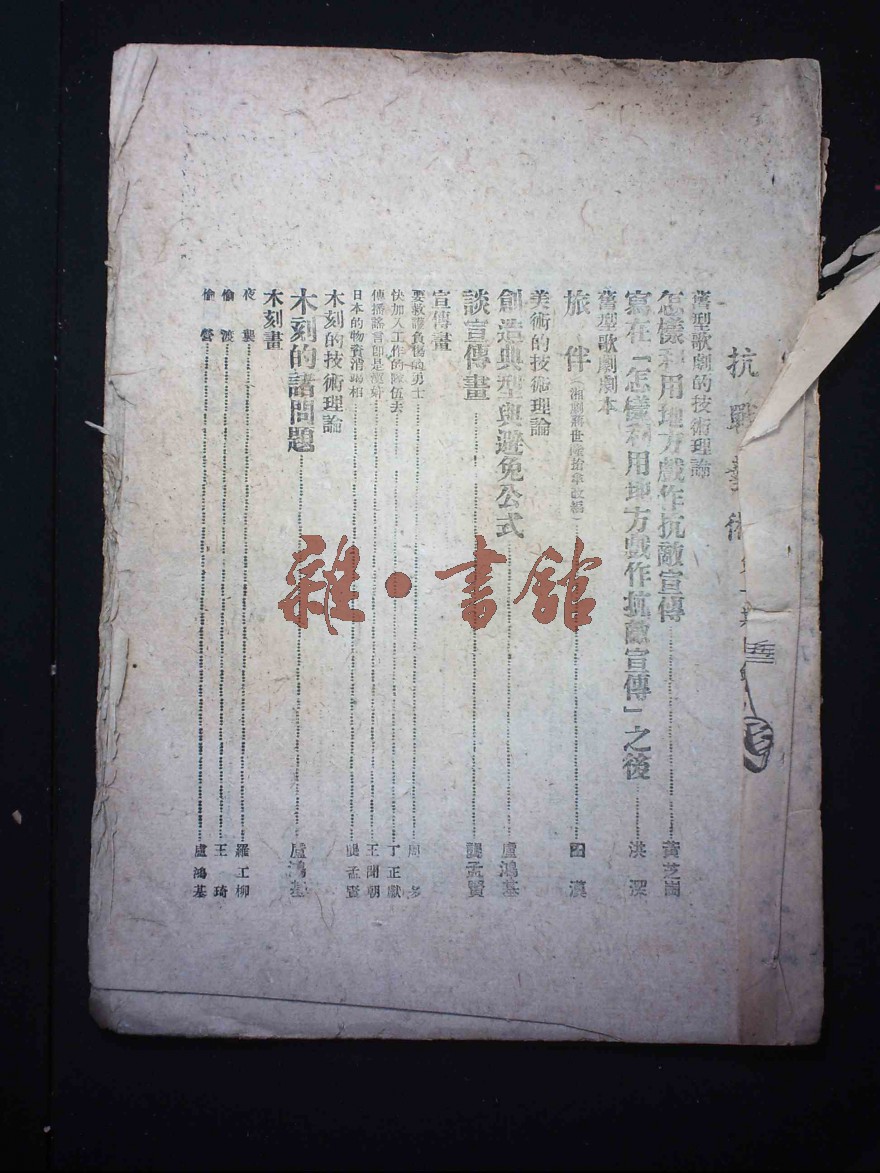 抗戰藝術
舊型歌劇的技術理論
怎樣利用地方戲作抗敵宣傳 黃芝岡
寫在「怎樣利用地方戲作抗敵宣傳」之後 洪深
舊型歌劇劇本
旅伴 田漢
美術的技術理論
創造典型與避免公式 盧鴻基
談宣傳畫 龔孟賢
宣傳畫
要救護負傷的勇士 周多
快加入工作的隊伍去 丁正獻
傳播謠言即是漢奸 王聞朝
日本的物資消耗相 龔孟賢
木刻的技術理論
木刻的諸問題 盧鴻基
木刻畫
夜襲 羅工柳
偷渡 王琦
偷營 盧鴻基
雜·書館